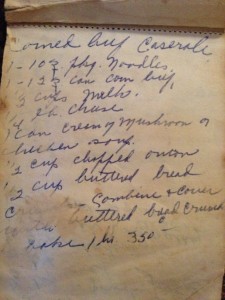 Corned Beef Caserole
1-10 oz pkg. Noodles.
1-12 oz can corn beef,
3 cups milk.
1/4 lb. cheese
1 can cream of mushroom or
chicken soup.
1/2 cup chopped onion
1/2 cup buttered bread
Combine & cover
buttered bread crumbs
Bake 1 hr. 350